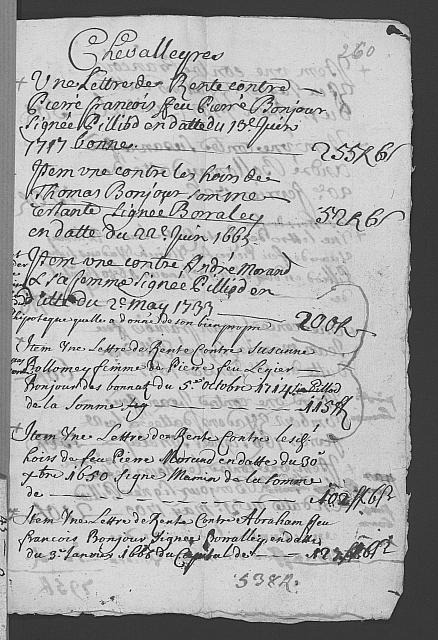 Chevalleyres
260
Une Lettre de Rente contre
Pierre francois feu Pierre Bonjour
Signée Pilliod en datte du 13e Juin
1717 bonnes 255 ℔ 6 s
Jtem une contre les hoirs de
Thomas Bonjour somme
restante Signée Borraley 52 ℔ 6 s
en datte du 22e Juin 1665
Jtem une contre André Morand
Signée Pilliod en
datte du 2e May 1733
hipoteque quelle a donné de son bien propre 200 ℔
Item Une Lettre de Rente Contre Susanne
femme de Pierre feu Legier
Bonjour des bonnat du 5e octobre 1714 sig Pilliod
de la Somme 115 ff
Item Une Lettre de Rente Contre les
hoirs de feu Pierre Morand en datte du 30e
xbre 1650 Signe Mamin de la Somme
de 102 ff 6 s
Item Une Lettre de Rente Contre Abraham feu
francois Bonjour Signee Borralley en datte
du 3e Janvier 1686 du Capital de
538 ℔